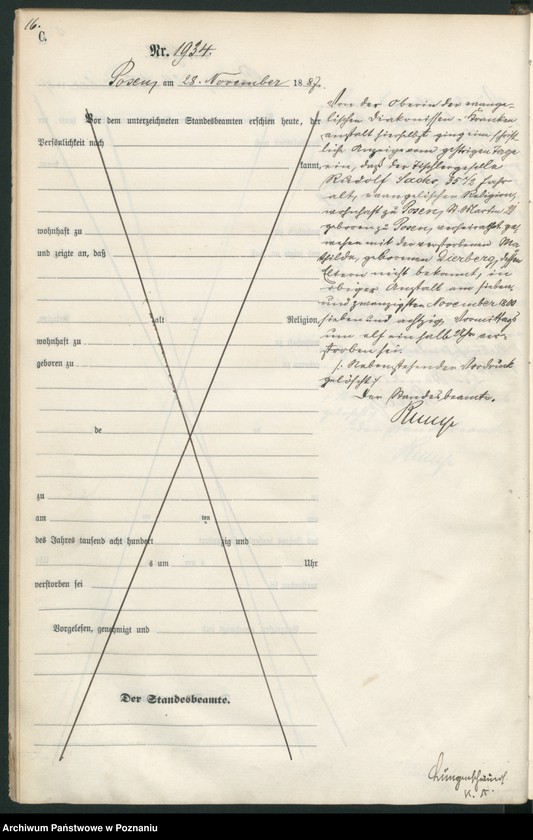 16.
C.
Nr. 1934.
Posen, am 28. November 1887.
Vor dem unterzeichneten Standesbeamten erschien heute, der
Persönlichkeit nach
kannt,
wohnhaft zu
und zeigte an, daß
alt Religion,
wohnhaft zu
geboren zu
de
zu
am ten
des Jahres tausend acht hundert zig und
s um Uhr
verstorben sei
Vorgelesen, genehmigt und
Der Standesbeamte.
Von der Oberin der evange-
lischen Diakonissen-Kranken
anstalt hierselbst ging eine schrift
liche Anzeige vom gestrigen Tage
ein, daß der Tischlergeselle
Rudolf 35 1/2 Jahr
alt, evangelischer Religion,
wohnhaft zu Posen, St. Martin
geboren zu Posen, verheirathet ge
wesen mit der verstorbenen Ma
thilde, geborenen Dierberg, dessen
Eltern nicht bekannt, in
obiger Anstalt am sieben
und zwanzigsten November 1800
sieben und achtzig, Vormittags
um elf einhalb Uhr ver-
storben sei.
/: Nebenstehender Vordruck
gelöscht :/
Der Standesbeamte.
Lungenschwinds.
K. A.
Archiwum Państwowe w Poznaniu